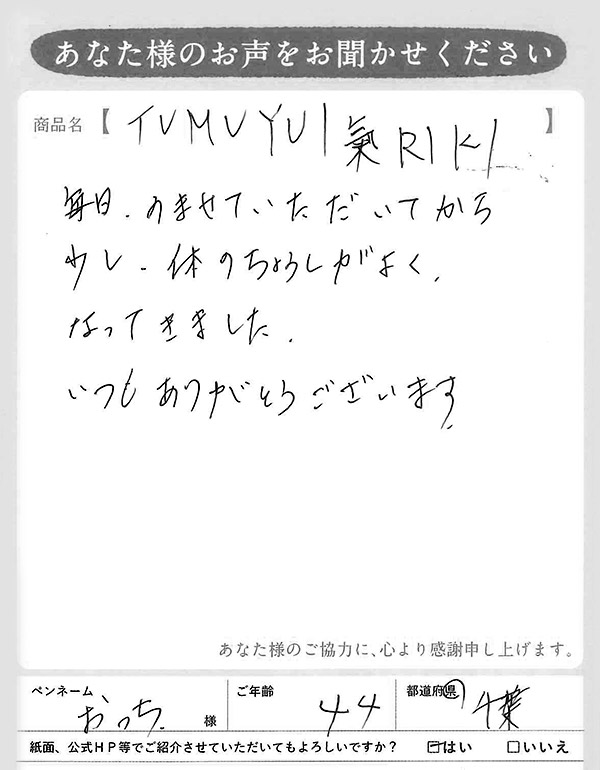 あなた様のお声をお聞かせください
商品名【 TUMUYUI 氣RIKI 】
毎日、のませていただいてから
少し、体のちょうしがよく、
なってきました、
いつもありがとうございます、
あなた様のご協力に、心より感謝申し上げます。
ペンネーム おっち 様 ご年齢 44 都道府県 千葉
紙面、公式HP等でご紹介させていただいてもよろしいですか? ☑はい □いいえ